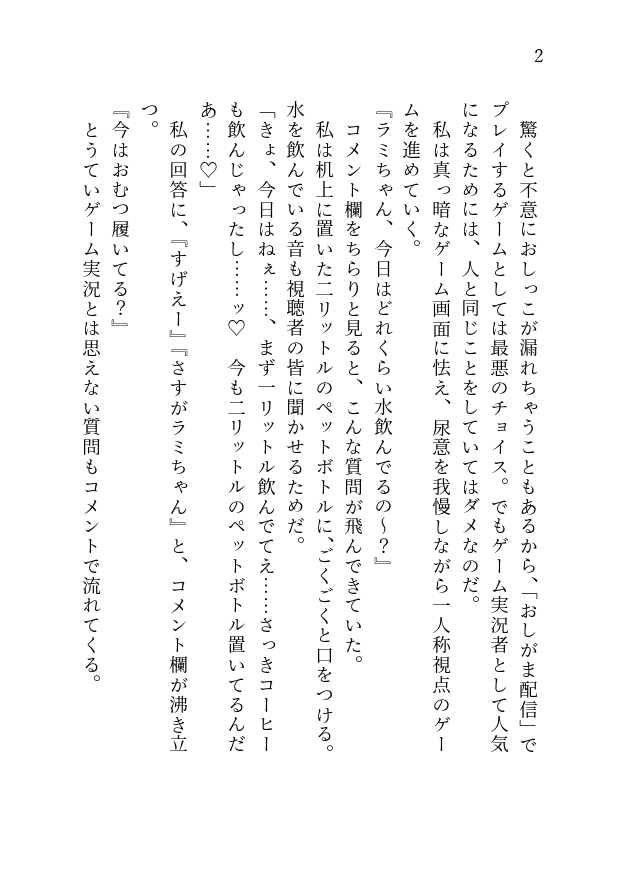 2
驚くと不意におしっこが漏れちゃうこともあるから、「おしがま配信」で
プレイするゲームとしては最悪のチョイス。でもゲーム実況者として人気
になるためには、人と同じことをしていてはダメなのだ。
私は真っ暗なゲーム画面に怯え、尿意を我慢しながら一人称視点のゲー
ムを進めていく。
『ラミちゃん、今日はどれくらい水飲んでるの〜？』
コメント欄をちらりと見ると、こんな質問が飛んできていた。
私は机上に置いた二リットルのペットボトルに、ごくごくと口をつける。
水を飲んでいる音も視聴者の皆に聞かせるためだ。
「きょ、今日はねぇ……、まず一リットル飲んでてえ……さっきコーヒー
も飲んじゃったし……ッ♡　今も二リットルのペットボトル置いてるんだ
あ……♡」
私の回答に、『すげえー』『さすがラミちゃん』と、コメント欄が沸き立
つ。
『今はおむつ履いてる？』
とうていゲーム実況とは思えない質問もコメントで流れてくる。